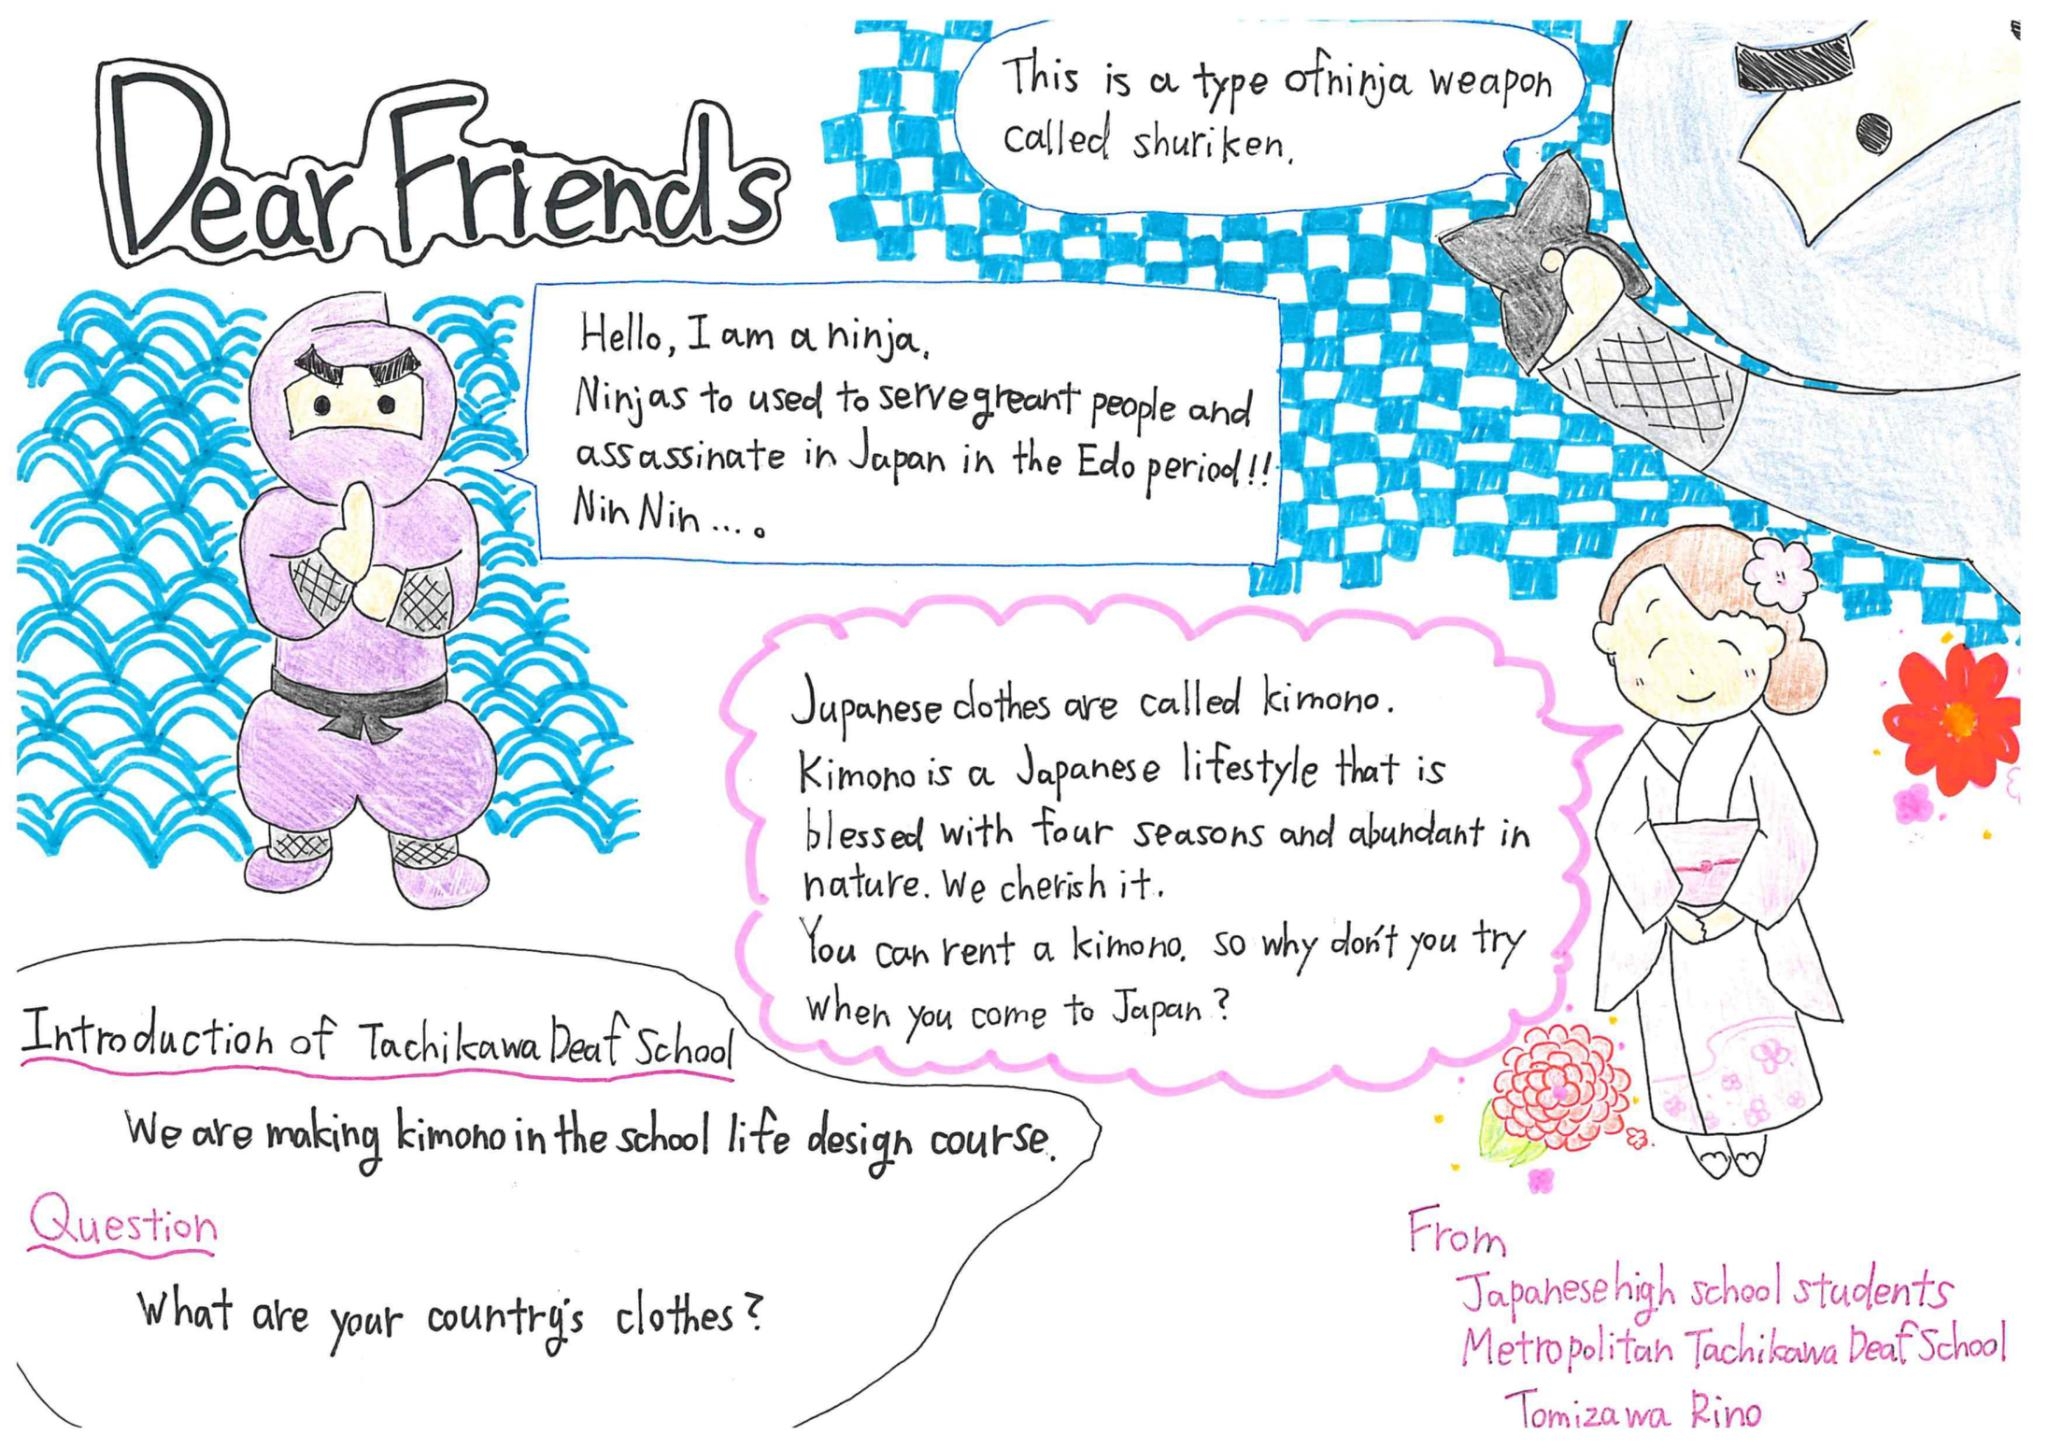 Dear Friends
This is a type ofninja weapon
called shuriken.
Hello, I am a ninja.
Ninjas to used to servegreant people and
assassinate in Japan in the Edo period!!
Nin Nin....。
Jupanese clothes are called kimono.
Kimono is a Japanese lifestyle that is
blessed with four seasons and abundant in
nature. We cherish it.
You can rent a kimono. so why don't you try
when you come to Japan?
Introduction of Tachikawa Deaf School
We are making kimono in the school life design course.
Question
What are your country's clothes?
From
Japanese high school students
Metropolitan Tachikawa Deaf School
Tomizawa Rino